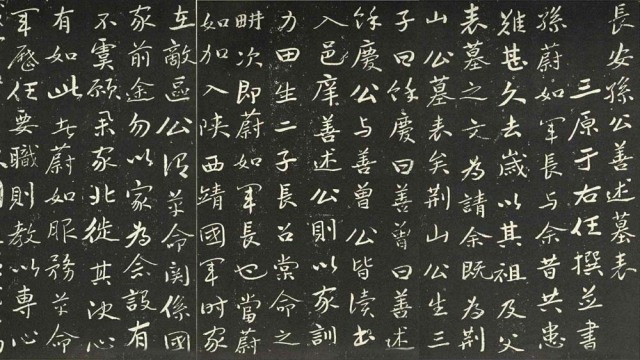 長安孫公善述墓表
三原于右任撰並書
孫蔚如軍長与余昔共患
難甚久去歲以其祖及父
表墓之文為請余既為荆
山公墓表矣荆山公生三
子曰餘慶曰善曾曰善述
餘慶公与善曾公皆讀書
入邑庠善述公則以家訓
力田生二子長召棠命之
畊次即蔚如軍長也當蔚
如加入陝西靖國軍時家
在敵區公謂革命関係國
家前途勿以家為念設有
不虞願弃家北徙其决心
有如此者蔚如服務革命
軍歷任要職則教以專心